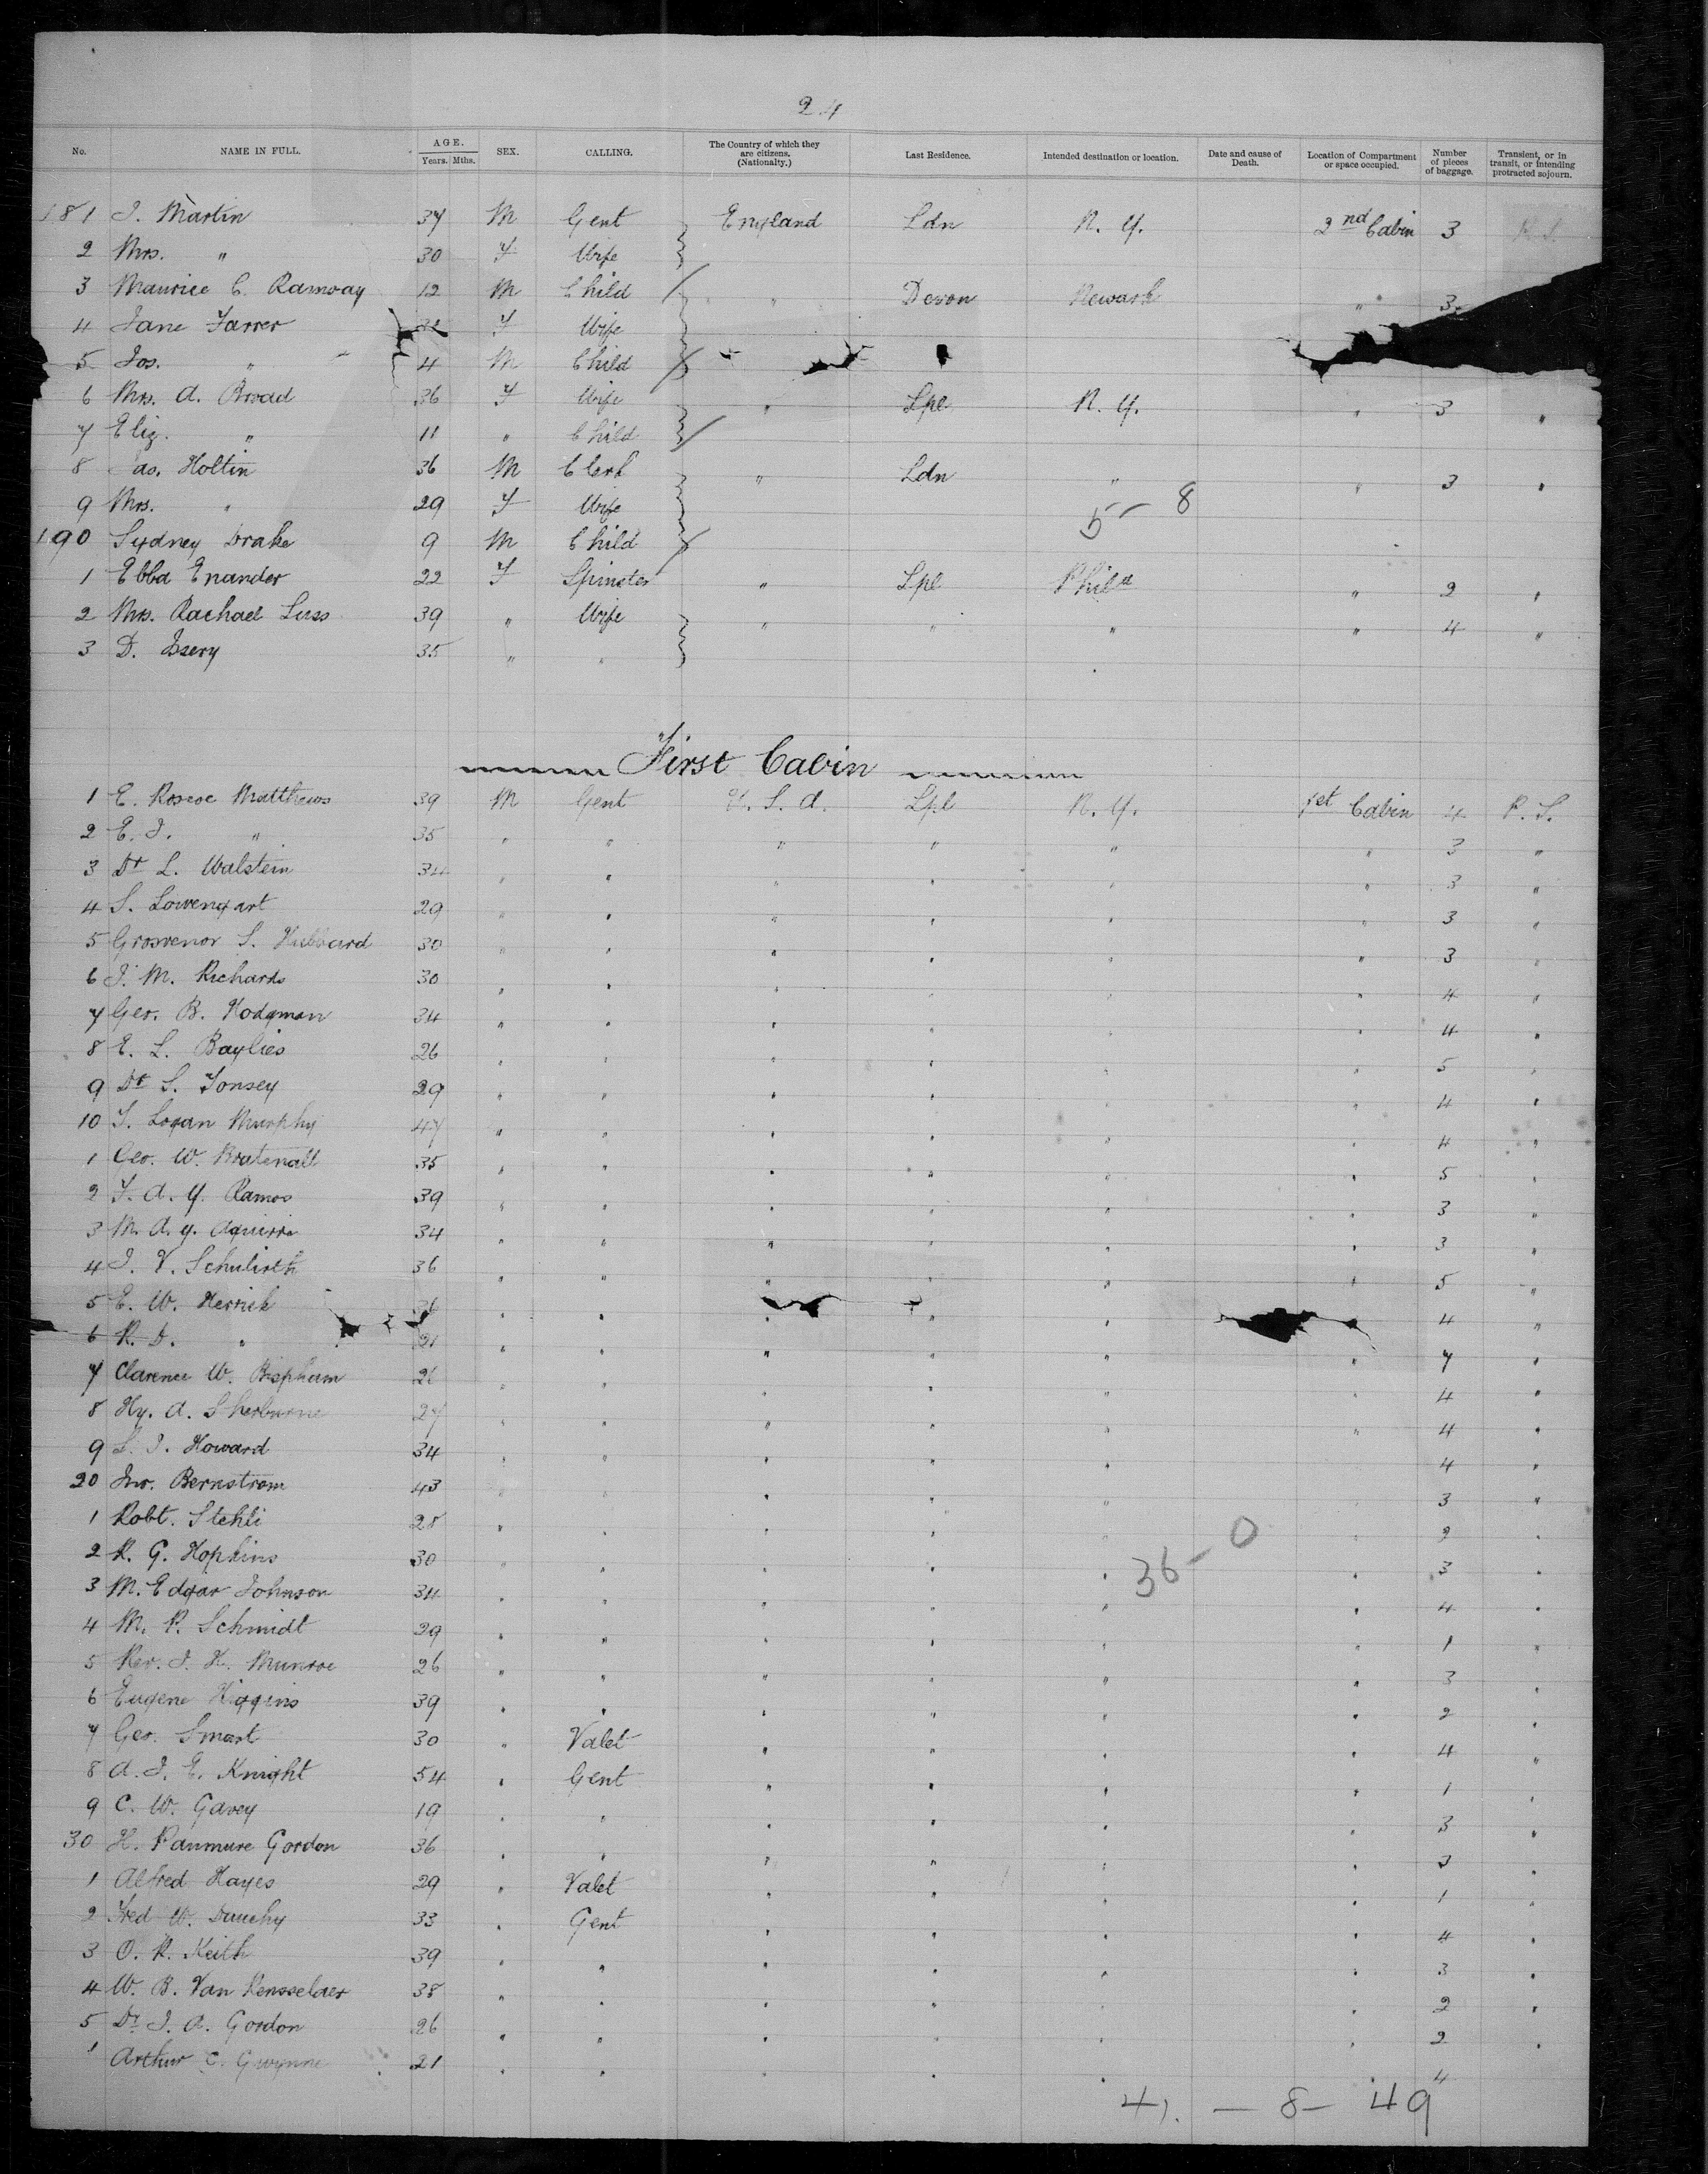 24
No. NAME IN FULL. AGE. Years. Mths. SEX. CALLING. The Country of which they are citizens. (Nationalty.) Last Residence. Intended destination or location. Date and cause of Death. Location of Compartment or space occupied. Number of pieces of baggage. Transient, or in transit, or intending protracted sojourn.
181 J. Martin 34 M Gent England Ldn N. Y. 2nd Cabin 3
2 Mrs. " 30 F Wife
3 Maurice C. Ramway 12 M Child " Devon Newark " 3
4 Jane Farrer F Wife
5 Jos. " 4 M Child
6 Mrs. A. Broad 36 F Wife " Lpl N. Y. " 3 "
7 Eliz. " 11 " Child
8 Jas. Holtin 36 M Clerk " Ldn " " 3 "
9 Mrs. " 29 F Wife
5 - 8
190 Sydney Drake 9 M Child
1 Ebba Enander 22 F Spinster " Lpl Phila " 2 "
2 Mrs. Rachael Luss 39 " Wife " " " " 4 "
3 D. Issery 35 " "
First Cabin
1 E. Roscoe Matthews 39 M Gent U. S. A. Lpl N. Y. 1st Cabin 4 P. S.
2 E. J. " 35 " " " " " " 3 "
3 Dr L. Walstein 34 " " " " " " 3 "
4 S. Lowengart 29 " " " " " " 3 "
5 Grosvenor S. Hubbard 30 " " " " " " 3 "
6 J. M. Richards 30 " " " " " " 4 "
7 Geo. B. Hodgman 34 " " " " " " 4 "
8 E. L. Baylies 26 " " " " " " 5 "
9 Dr S. Tonsey 29 " " " " " " 4 "
10 T. Logan Murphy 47 " " " " " " 4 "
1 Geo. W. Bratenall 35 " " " " " " 5 "
2 F. A. Y. Ramos 39 " " " " " " 3 "
3 M. A. y. Aguirre 34 " " " " " " 3 "
4 J. V. Schulirth 36 " " " " " " 5 "
5 E. W. Herrick " " " " " 4 "
6 R. D. " 21 " " " " " " 7 "
7 Clarence W. Bispham " " " " " " 4 "
8 Hy. A. Sherburne 27 " " " " " " 4 "
9 S. J. Howard 34 " " " " " " 4 "
20 Jno. Bernstrom 43 " " " " " " 3 "
1 Robt. Stehli 28 " " " " " " 2 "
36 - 0
2 R. G. Hopkins 30 " " " " " " 3 "
3 M. Edgar Johnson 34 " " " " " " 4 "
4 M. P. Schmidt 29 " " " " " " 1 "
5 Rev. J. H. Munroe 26 " " " " " " 3 "
6 Eugene Higgins 39 " " " " " " 2 "
7 Geo. Smart 30 " Valet " " " " 4 "
8 A. J. E. Knight 54 " Gent " " " " 1 "
9 C. W. Gavey 19 " " " " " " 3 "
30 H. Panmure Gordon 36 " " " " " " 3 "
1 Alfred Hayes 29 " Valet " " " " 1 "
2 Fred W. Dauchy 33 " Gent " " " " 4 "
3 O. R. Keith 39 " " " " " " 3 "
4 W. B. Van Rensselaer 38 " " " " " " 2 "
5 Dr. J. A. Gordon 26 " " " " " " 2 "
1 Arthur C. Gwynne 21 " " " " " 4
41. - 8 - 49